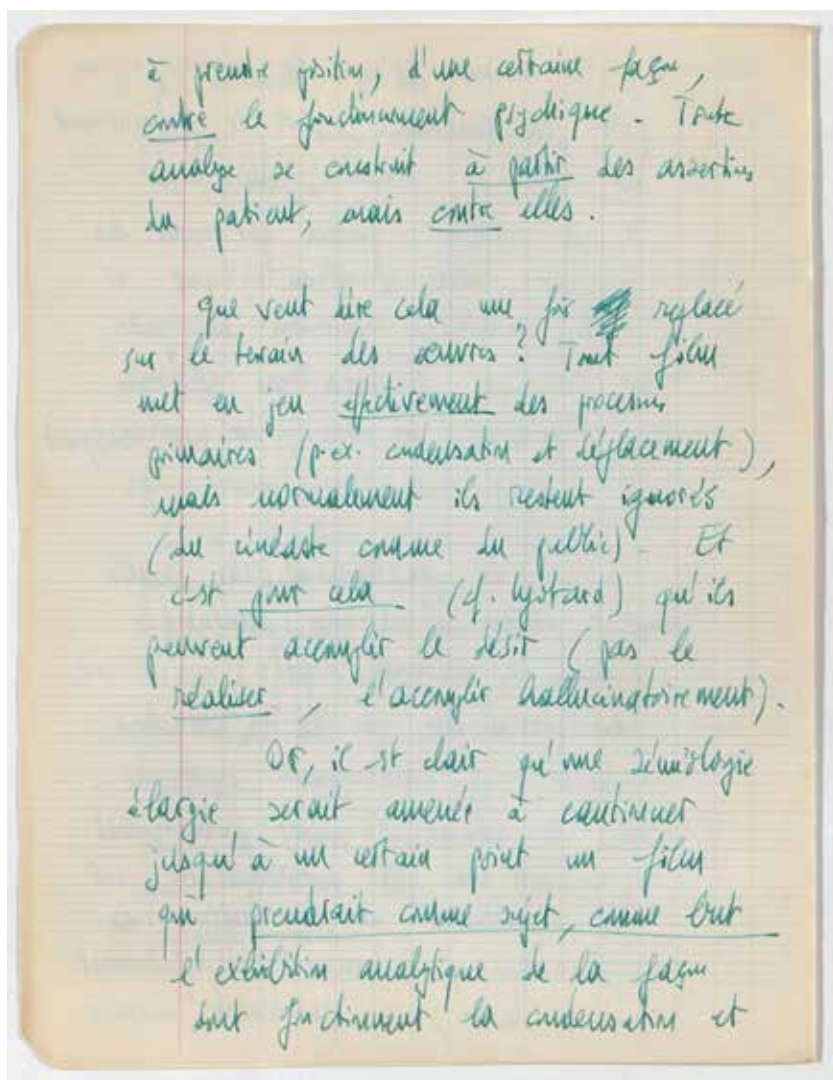 à prendre position, d'une certaine façon,
contre le fonctionnement psychique. Toute
analyse se construit à partir des assertions
du patient, mais contre elles.
Que veut dire cela une fois replacé
sur le terrain des œuvres? Tout film
met en jeu effectivement des processus
primaires (p. ex. condensation et déplacement),
mais normalement ils restent ignorés
(du cinéaste comme du public). Et
c'est pour cela (cf. Lyotard) qu'ils
peuvent accomplir le désir (pas le
réaliser, l'accomplir hallucinatoirement).
Or, il est clair qu'une sémiologie
élargie serait amenée à cautionner
jusqu'à un certain point un film
qui prendrait comme sujet, comme but
l'exhibition analytique de la façon
dont fonctionnent la condensation et